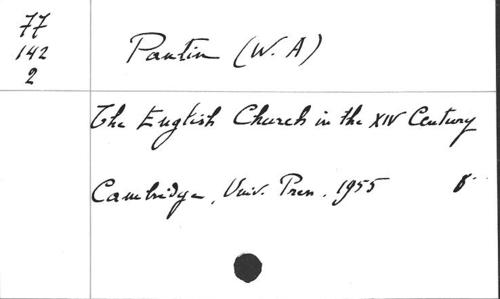 77
142
2
Pantin (W. A)
The English Church in the XIV Century
Cambridge, Univ. Press. 1955